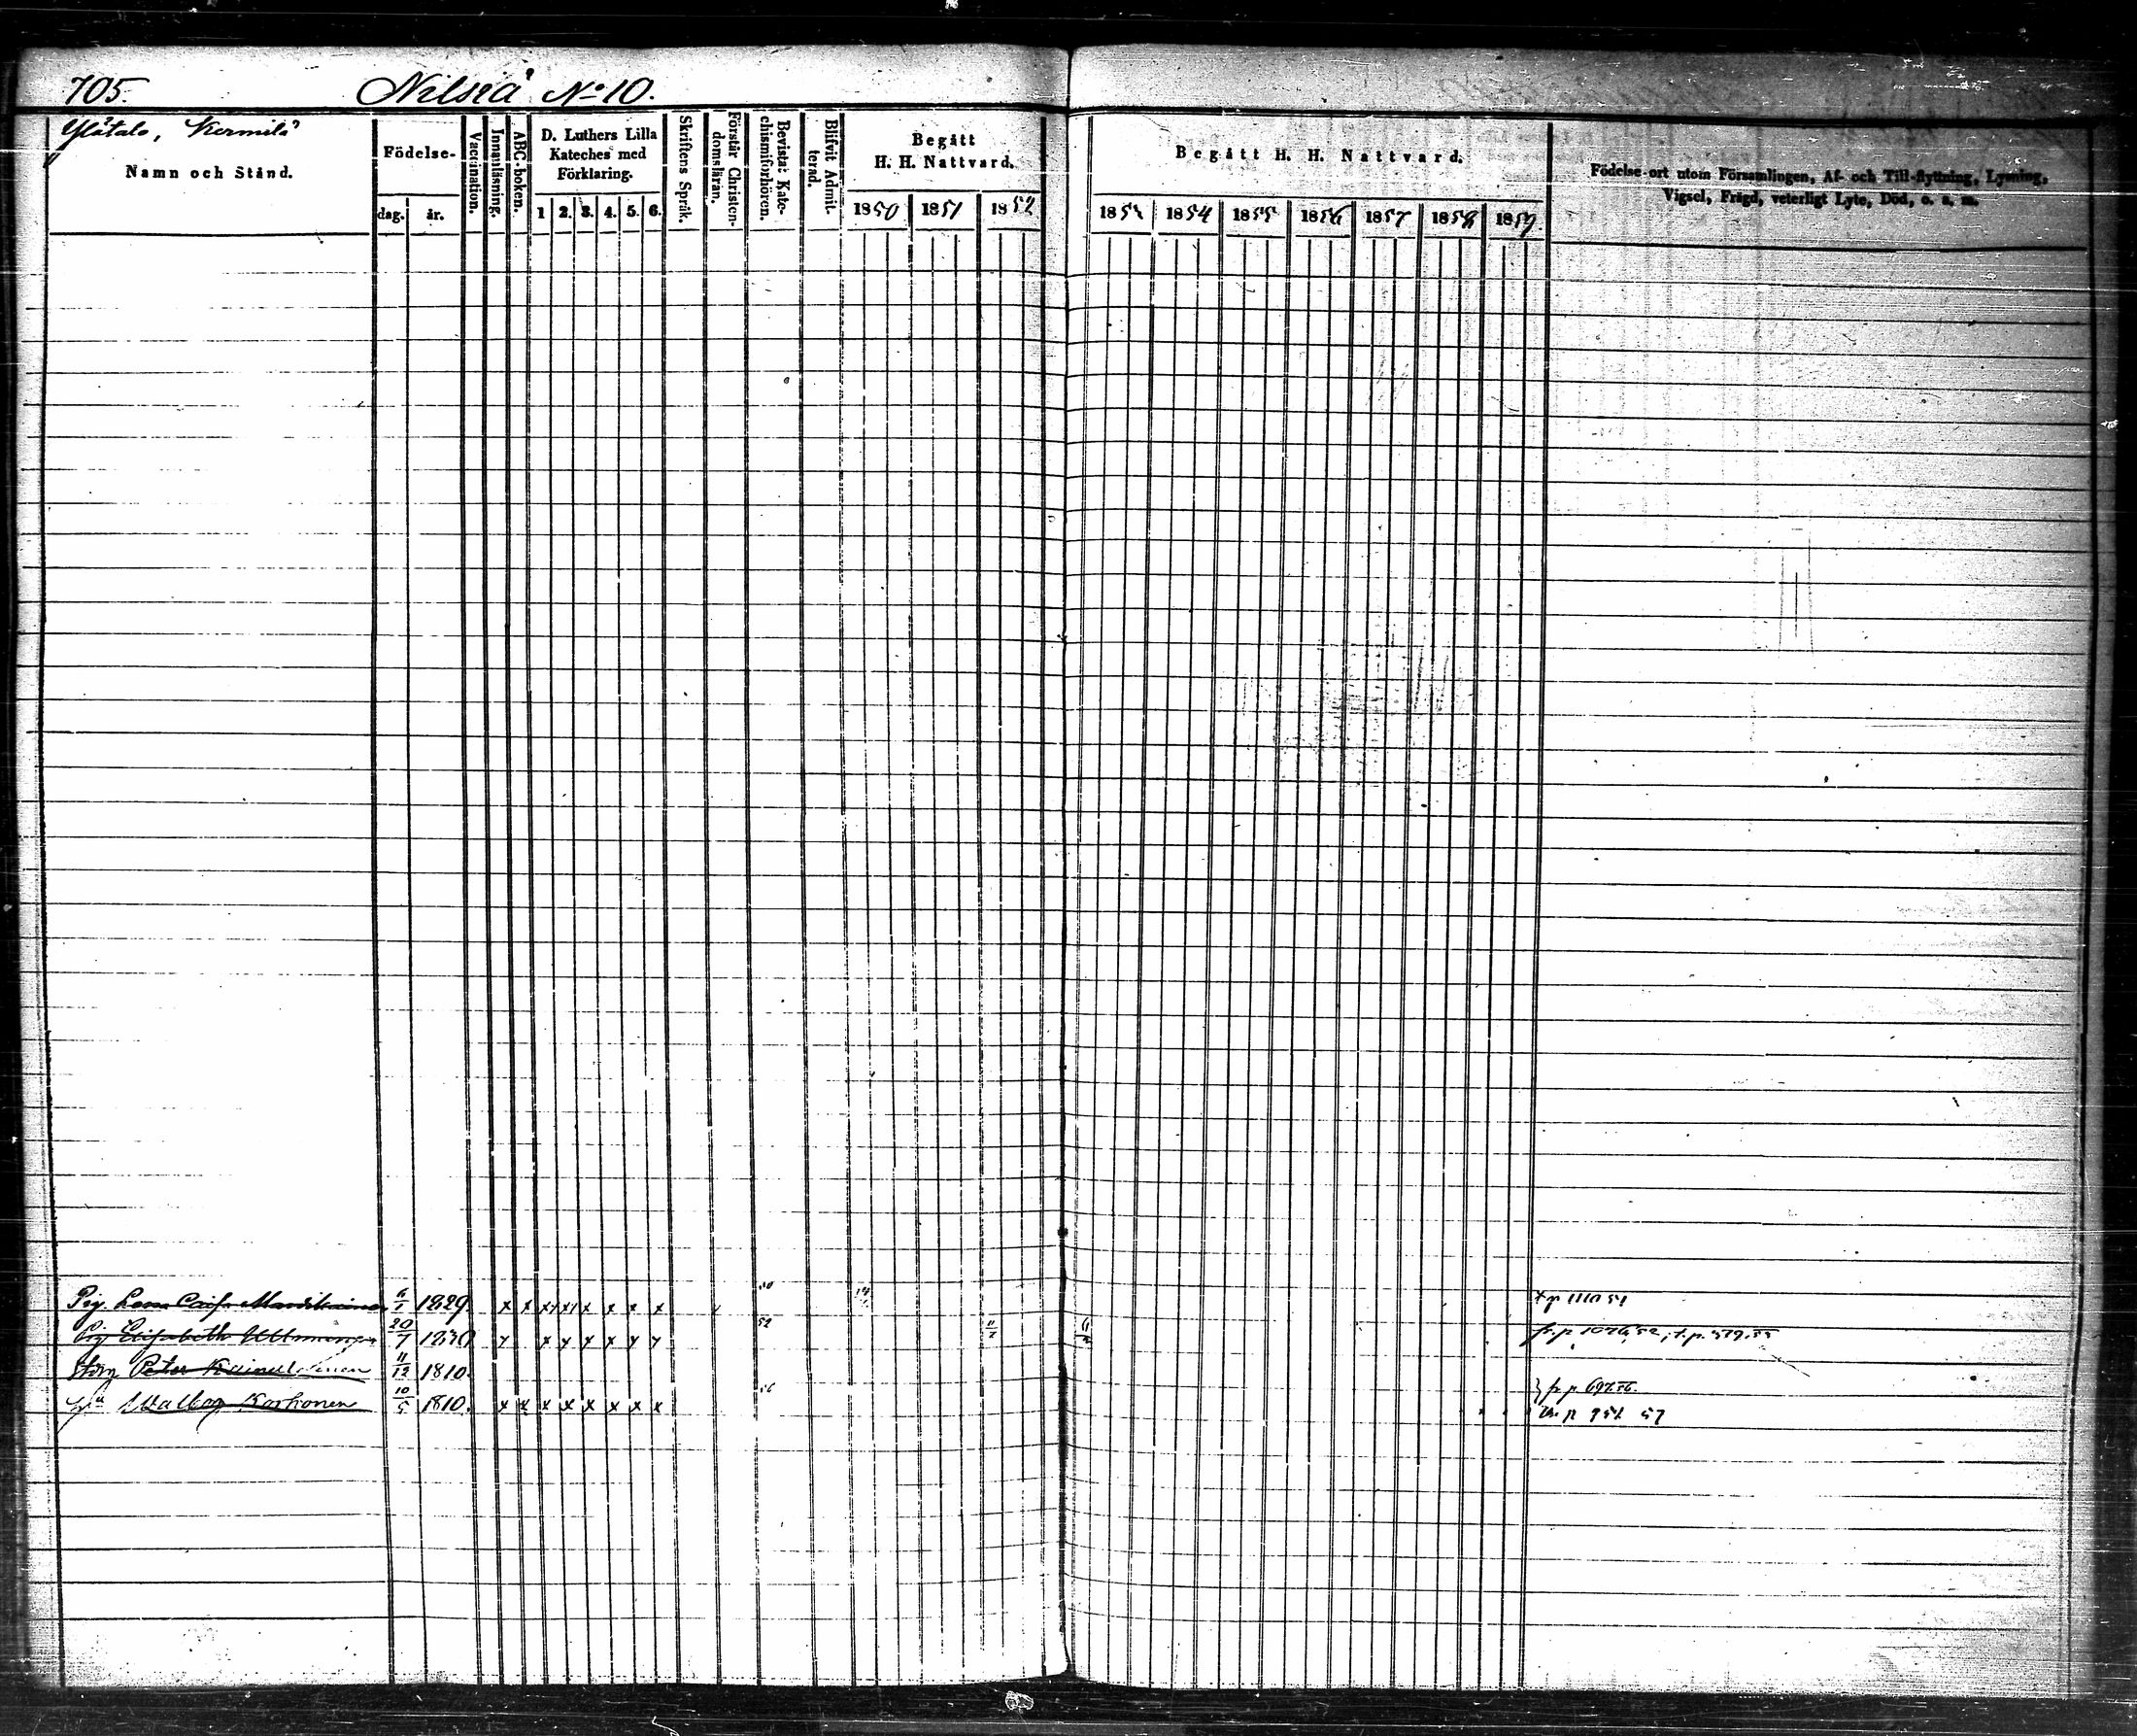 705. Nilsiä No 10.
Ylätalo, Kermilä
Namn och Stånd.
Födelse-
dag. år.
Vaccination.
Innanläsning.
ABC-boken.
D. Luthers Lilla
Kateches med
Förklaring.
1 2. 3. 4. 5. 6.
Skriftens Språk.
Förstår Christen-
domsläran.
Bevistat Kate-
chismiförhören.
Blifvit Admit-
terad.
Begått
H. H. Nattvard.
1850 1851 1852
Begått H. H. Nattvard.
1853 1854 1855 1856 1857 1858 1859.
Födelse-ort utom Församlingen, Af- och Till-flyttning, Lysning,
Vigsel, Frägd, veterligt Lyte, Död, o. s. m.
Pig. Lena Caisa 1829. x x x x x x x x
Pig Elisabeth 20/7 1830 52 11/7 fr. p 1076, 52, t. p. 579. 55
Peter Kainulainen 11/12 1810.
Walbog Korhonen 10/5 1810. x x x x x x x x 56 fr p 697. 56.
p 951 57